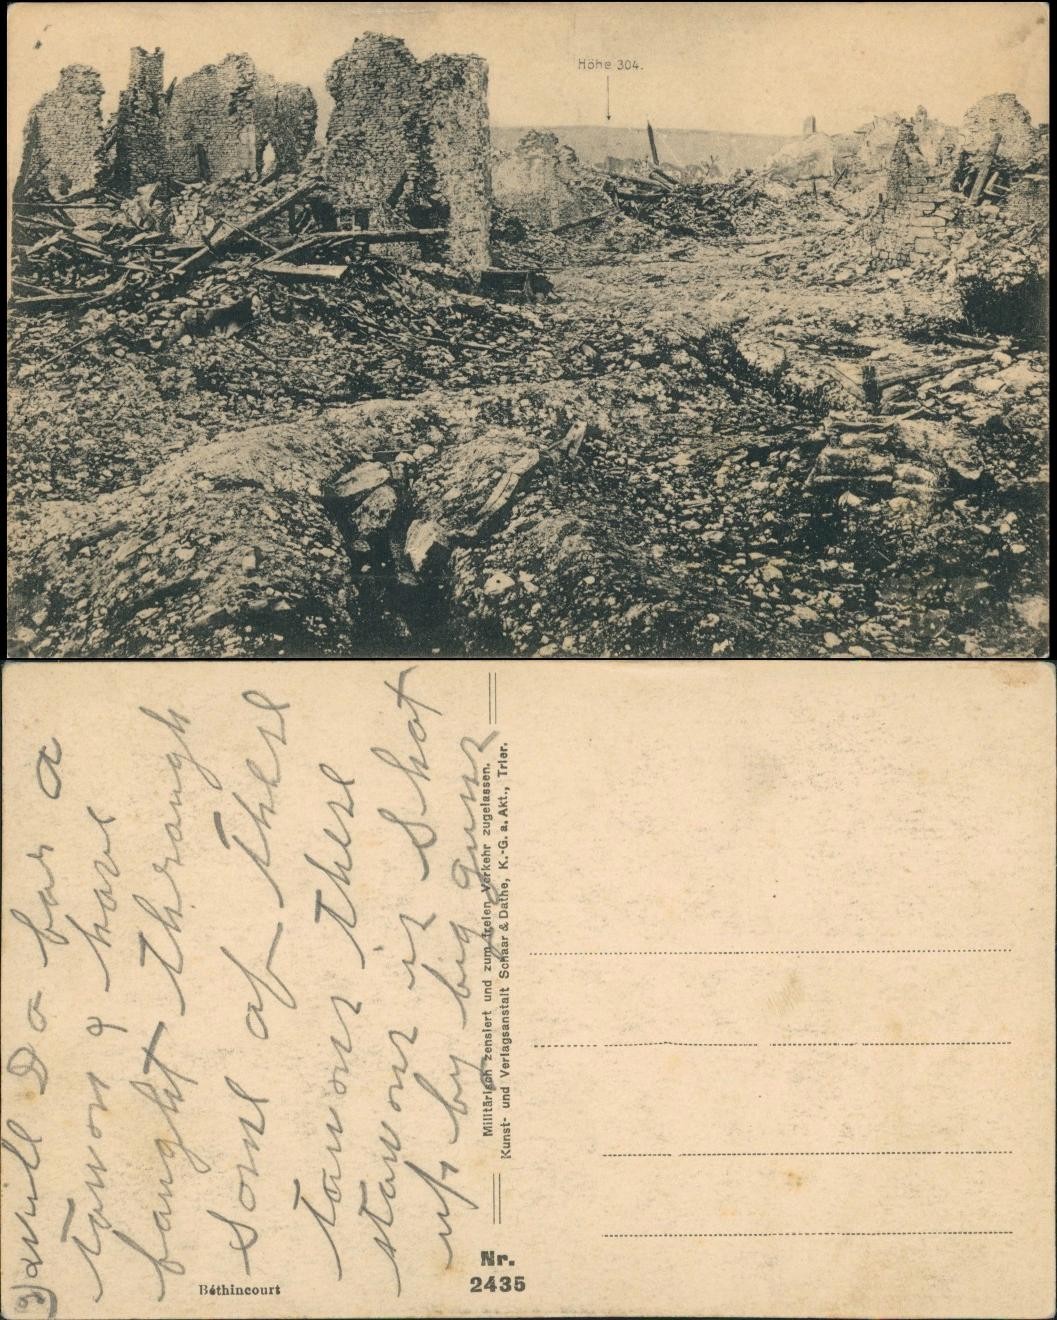 Höhe 304.
will Do for a
town I have
faught through
some of these
towns these
stowns is shot
up by big guns
Béthincourt
Nr.
2435
Militärisch zensiert und zum freien Verkehr zugelassen.
Kunst- und Verlagsanstalt Schaar & Dathe, K.-G. a. Akt., Trier.